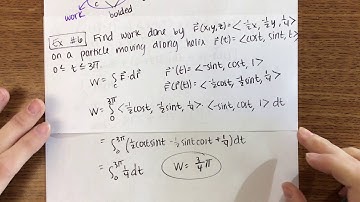 work
bolded
Ex #6 Find work done by F(x,y,z) = <-½x, -½y, ¼>
on a particle moving along helix r(t) = <cost, sint, t>
0 ≤ t ≤ 3π
W = ∫_C F · dr
r'(t) = <-sint, cost, 1>
F(r(t)) = <-½cost, -½sint, ¼>
W = ∫_0^{3π} <-½cost, -½sint, ¼> · <-sint, cost, 1> dt
= ∫_0^{3π} (½costsint - ½sintcost + ¼) dt
= ∫_0^{3π} ¼ dt
W = ¾π